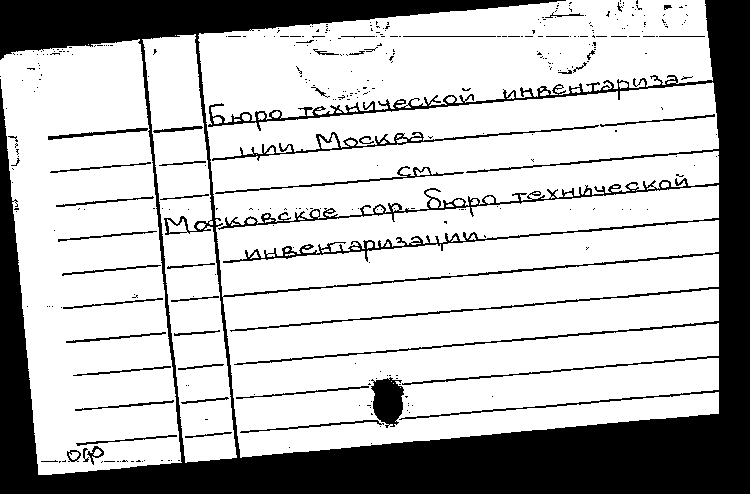 Бюро технической инвентариза-
ции. Москва.
см.
Московское гор. бюро технической
инвентаризации.